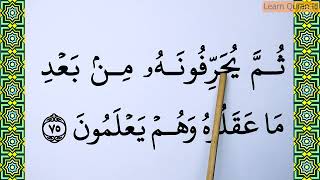 Learn Quran id
ثُمَّ يُحَرِّفُونَهُۥ مِنۢ بَعۡدِ
مَا عَقَلُوهُ وَهُمۡ يَعۡلَمُونَ ۝٧٥